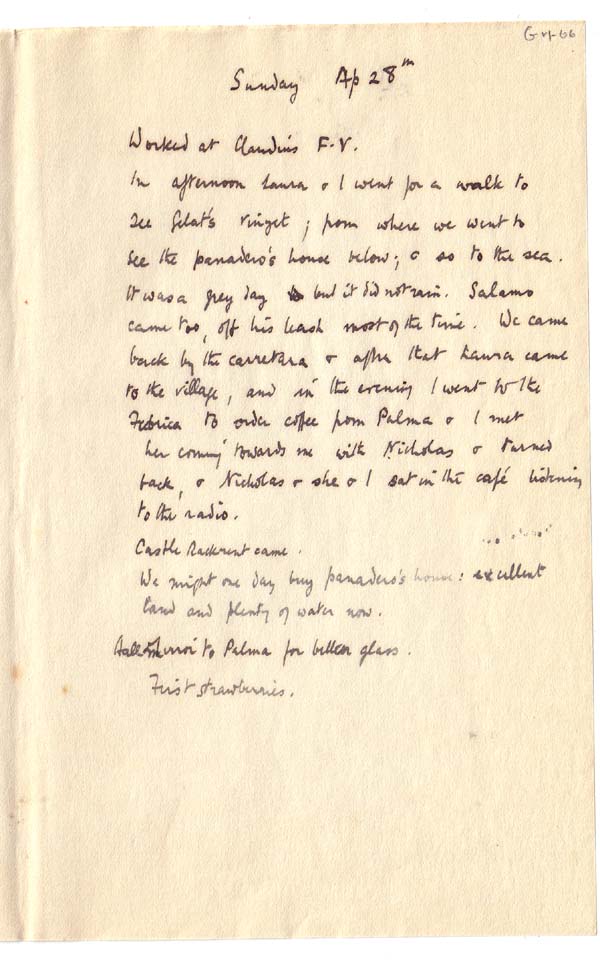 Sunday Ap 28th
Worked at Claudius F-V.
In afternoon Laura & I went for a walk to
see Gelat's vinyet; from where we went to
see the panadero's house below; & so to the sea.
It was a grey day but it did not rain. Salamo
came too, off his leash most of the time. We came
back by the carretara & after that Laura came
to the village, and in the evening I went to the
Febrica to order coffee from Palma & I met
her coming towards me with Nicholas & turned
back, & Nicholas & she & I sat in the café listening
to the radio.
Castle Rackrent came.
We might one day buy panadero's house: excellent
land and plenty of water now.
mirror to Palma for better glass.
First strawberries.